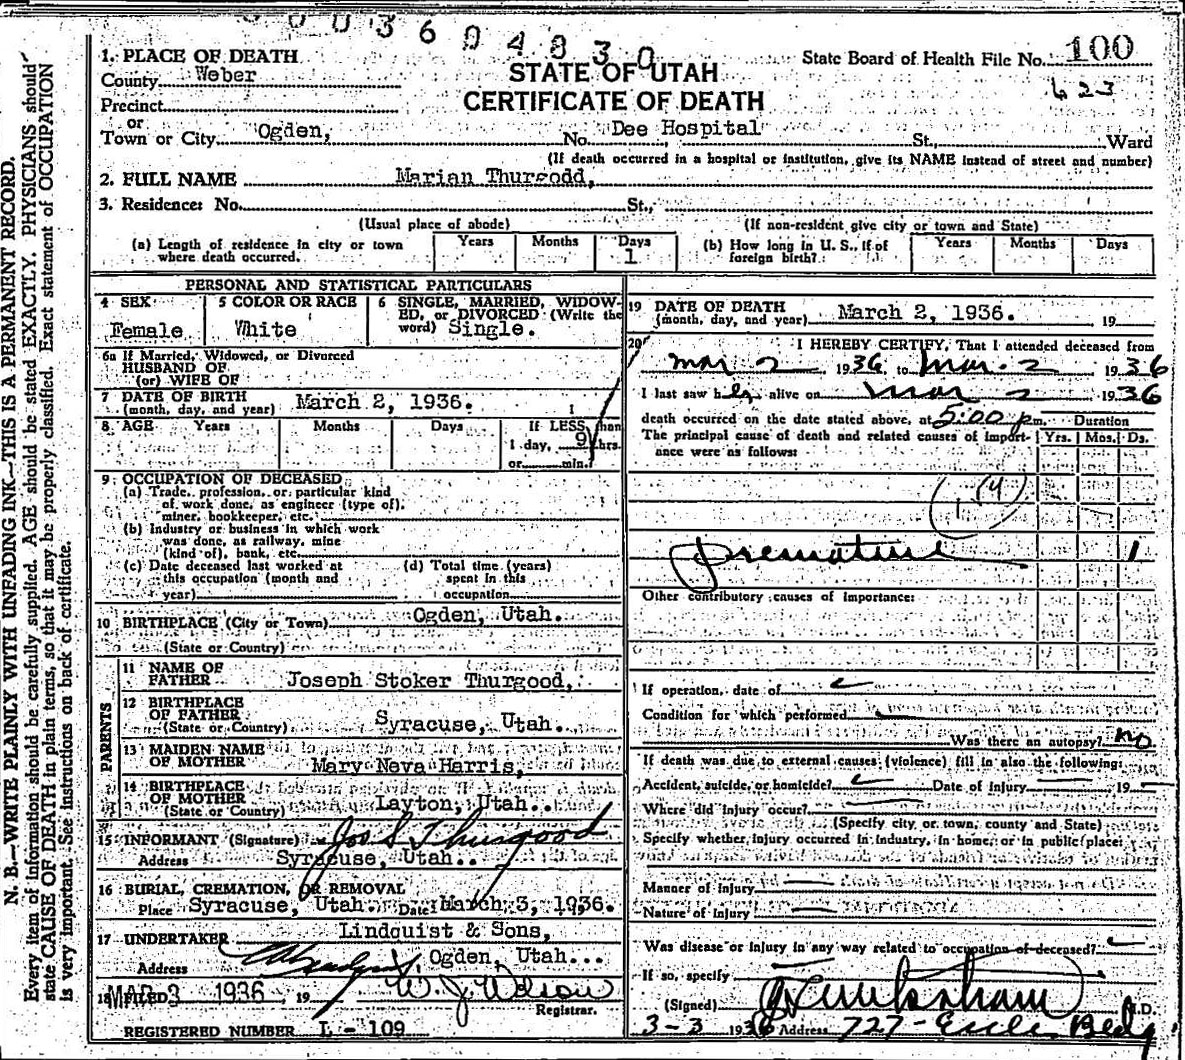 003604830
1. PLACE OF DEATH
County Weber
STATE OF UTAH
State Board of Health File No. 100
Precinct
CERTIFICATE OF DEATH
623
or
Town or City Ogden, No. Dee Hospital St., Ward
(If death occurred in a hospital or institution, give its NAME instead of street and number)
2. FULL NAME Marian Thurgodd,
3. Residence: No. St.,
(Usual place of abode) (If non-resident give city or town and State)
(a) Length of residence in city or town where death occurred. Years Months Days 1 (b) How long in U. S., if of foreign birth? Years Months Days
PERSONAL AND STATISTICAL PARTICULARS
4 SEX Female
5 COLOR OR RACE White
6 SINGLE, MARRIED, WIDOWED, or DIVORCED (Write the word) Single.
6a If Married, Widowed, or Divorced
HUSBAND OF
(or) WIFE OF
7 DATE OF BIRTH
(month, day, and year) March 2, 1936.
8 AGE Years Months Days If LESS than
1 day, 9 hrs.
or min.
9 OCCUPATION OF DECEASED
(a) Trade, profession, or particular kind
of work done, as engineer (type of),
miner, bookkeeper, etc.
(b) Industry or business in which work
was done, as railway, mine
(kind of), bank, etc.
(c) Date deceased last worked at
this occupation (month and
year)
(d) Total time (years)
spent in this
occupation
10 BIRTHPLACE (City or Town) Ogden, Utah.
(State or Country)
PARENTS
11 NAME OF
FATHER Joseph Stoker Thurgood,
12 BIRTHPLACE
OF FATHER
(State or Country) Syracuse, Utah.
13 MAIDEN NAME
OF MOTHER Mary Neva Harris,
14 BIRTHPLACE
OF MOTHER
(State or Country) Layton, Utah..
15 INFORMANT (Signature) Jos S Thurgood
Address Syracuse, Utah..
16 BURIAL, CREMATION, OR REMOVAL
Place Syracuse, Utah. Date March 3, 1936.
17 UNDERTAKER Lindquist & Sons,
Address Ogden, Utah...
18 FILED MAR 3 1936, 19 W. J. Wilson
Registrar.
REGISTERED NUMBER L - 109
19 DATE OF DEATH
(month, day, and year) March 2, 1936. 19
20 I HEREBY CERTIFY, That I attended deceased from
Mar 2 1936, to Mar. 2 1936
I last saw her alive on Mar 2 1936
death occurred on the date stated above, at 5:00 p m. Duration
The principal cause of death and related causes of importance were as follows: Yrs. Mos. Ds.
Premature 1
Other contributory causes of importance:
If operation, date of
Condition for which performed
Was there an autopsy? no
If death was due to external causes (violence) fill in also the following:
Accident, suicide, or homicide? Date of Injury 19
Where did injury occur?
(Specify city or town, county and State)
Specify whether injury occurred in industry, in home, or in public place:
Manner of Injury
Nature of Injury
Was disease or injury in any way related to occupation of deceased?
If so, specify
(Signed) M.D.
3-3 1936 Address 727- Eccles Bldg
N. B.—WRITE PLAINLY WITH UNFADING INK—THIS IS A PERMANENT RECORD.
Every item of information should be carefully supplied. AGE should be stated EXACTLY. PHYSICIANS should
state CAUSE OF DEATH in plain terms, so that it may be properly classified. Exact statement of OCCUPATION
is very important. See instructions on back of certificate.